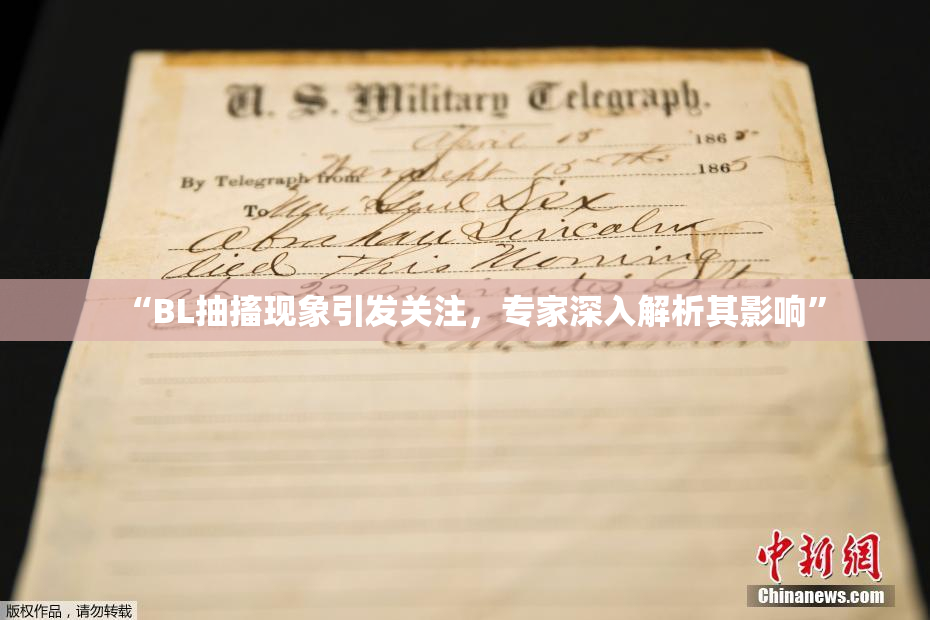 U. S. Military Telegraph.
April 15 1865
By Telegraph from War Dept 15th 1865
To Maj Genl Dix
Abraham Lincoln
died This Morning
at 22 minutes after
“BL抽搐现象引发关注，专家深入解析其影响”
E. M. Stanton
中新网
Chinanews.com
版权作品，请勿转载